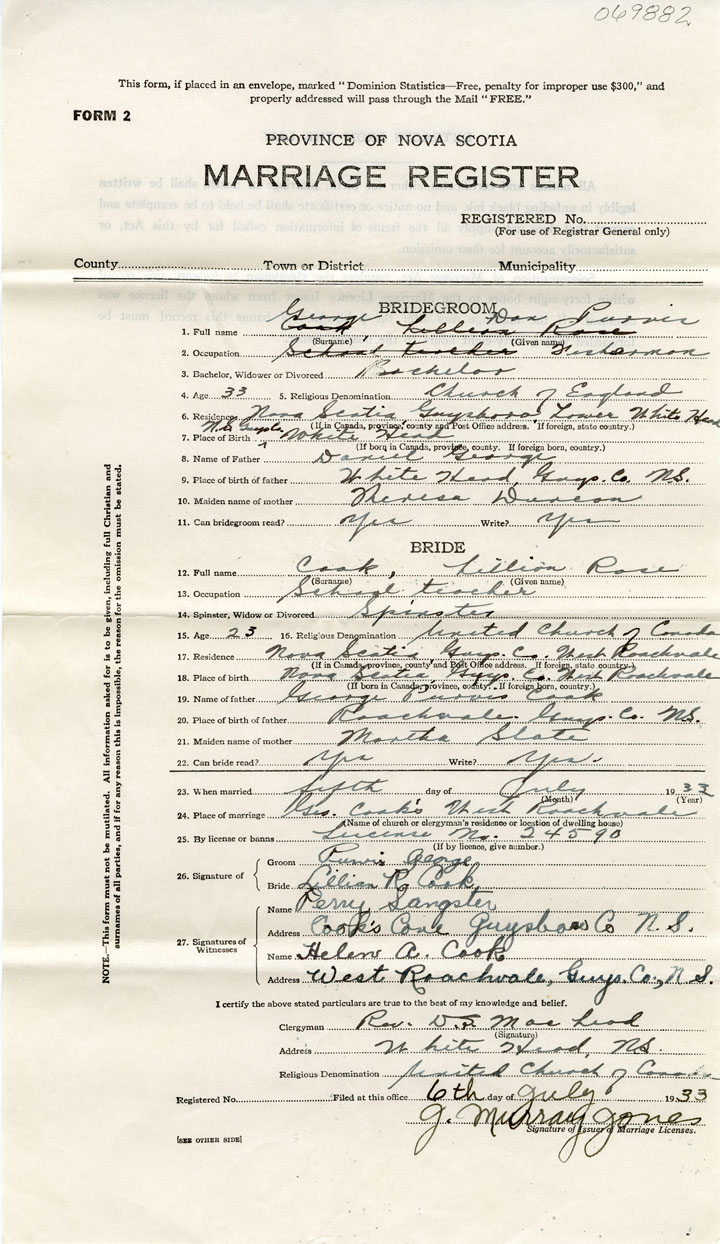 069882
This form, if placed in an envelope, marked "Dominion Statistics—Free, penalty for improper use $300," and
properly addressed will pass through the Mail "FREE."
FORM 2
PROVINCE OF NOVA SCOTIA
MARRIAGE REGISTER
REGISTERED No.
(For use of Registrar General only)
County Town or District Municipality
BRIDEGROOM
George Dan Purvis
1. Full name Cook, Lillian Rose
(Surname) (Given name)
2. Occupation School teacher Fisherman
3. Bachelor, Widower or Divorced Bachelor
4. Age 33 5. Religious Denomination Church of England
6. Residence Nova Scotia Guysboro Lower White Head
(If in Canada, province, county and Post Office address. If foreign, state country.)
N.S. Guysb.
7. Place of Birth White Head
(If born in Canada, province, county. If foreign born, country.)
8. Name of Father Daniel George
9. Place of birth of father White Head, Guys. Co. N.S.
10. Maiden name of mother Theresa Duncan
11. Can bridegroom read? Yes Write? Yes
BRIDE
12. Full name Cook, Lillian Rose
(Surname) (Given name)
13. Occupation School teacher
14. Spinster, Widow or Divorced Spinster
15. Age 23 16. Religious Denomination United Church of Canada
17. Residence Nova Scotia Guys. Co. West Roachvale
(If in Canada, province, county and Post Office address. If foreign, state country.)
18. Place of birth Nova Scotia, Guys. Co. West Roachvale
(If born in Canada, province, county. If foreign born, country.)
19. Name of father George Purvis Cook
20. Place of birth of father Roachvale Guys. Co. N.S.
21. Maiden name of mother Martha Slate
22. Can bride read? Yes Write? Yes.
23. When married fifth day of July 1933
(Month) (Year)
24. Place of marriage Geo. Cook's West Roachvale
(Name of church or clergyman's residence or location of dwelling house)
25. By license or banns License No. 24590
(If by licence, give number.)
26. Signature of
Groom Purvis George
Bride Lillian R. Cook
27. Signatures of Witnesses
Name Perry Sangster
Address Cook's Cove Guysboro Co N.S.
Name Helen A. Cook
Address West Roachvale, Guys. Co., N.S.
I certify the above stated particulars are true to the best of my knowledge and belief.
Clergyman Rev. D.S. MacLeod
(Signature)
Address White Head, N.S.
Religious Denomination United Church of Canada
Registered No. Filed at this office 6th day of July 1933
J. Murray Jones
Signature of Issuer of Marriage Licenses.
[SEE OTHER SIDE]
NOTE.—This form must not be mutilated. All information asked for is to be given, including full Christian and
surnames of all parties, and if for any reason this is impossible, the reason for the omission must be stated.